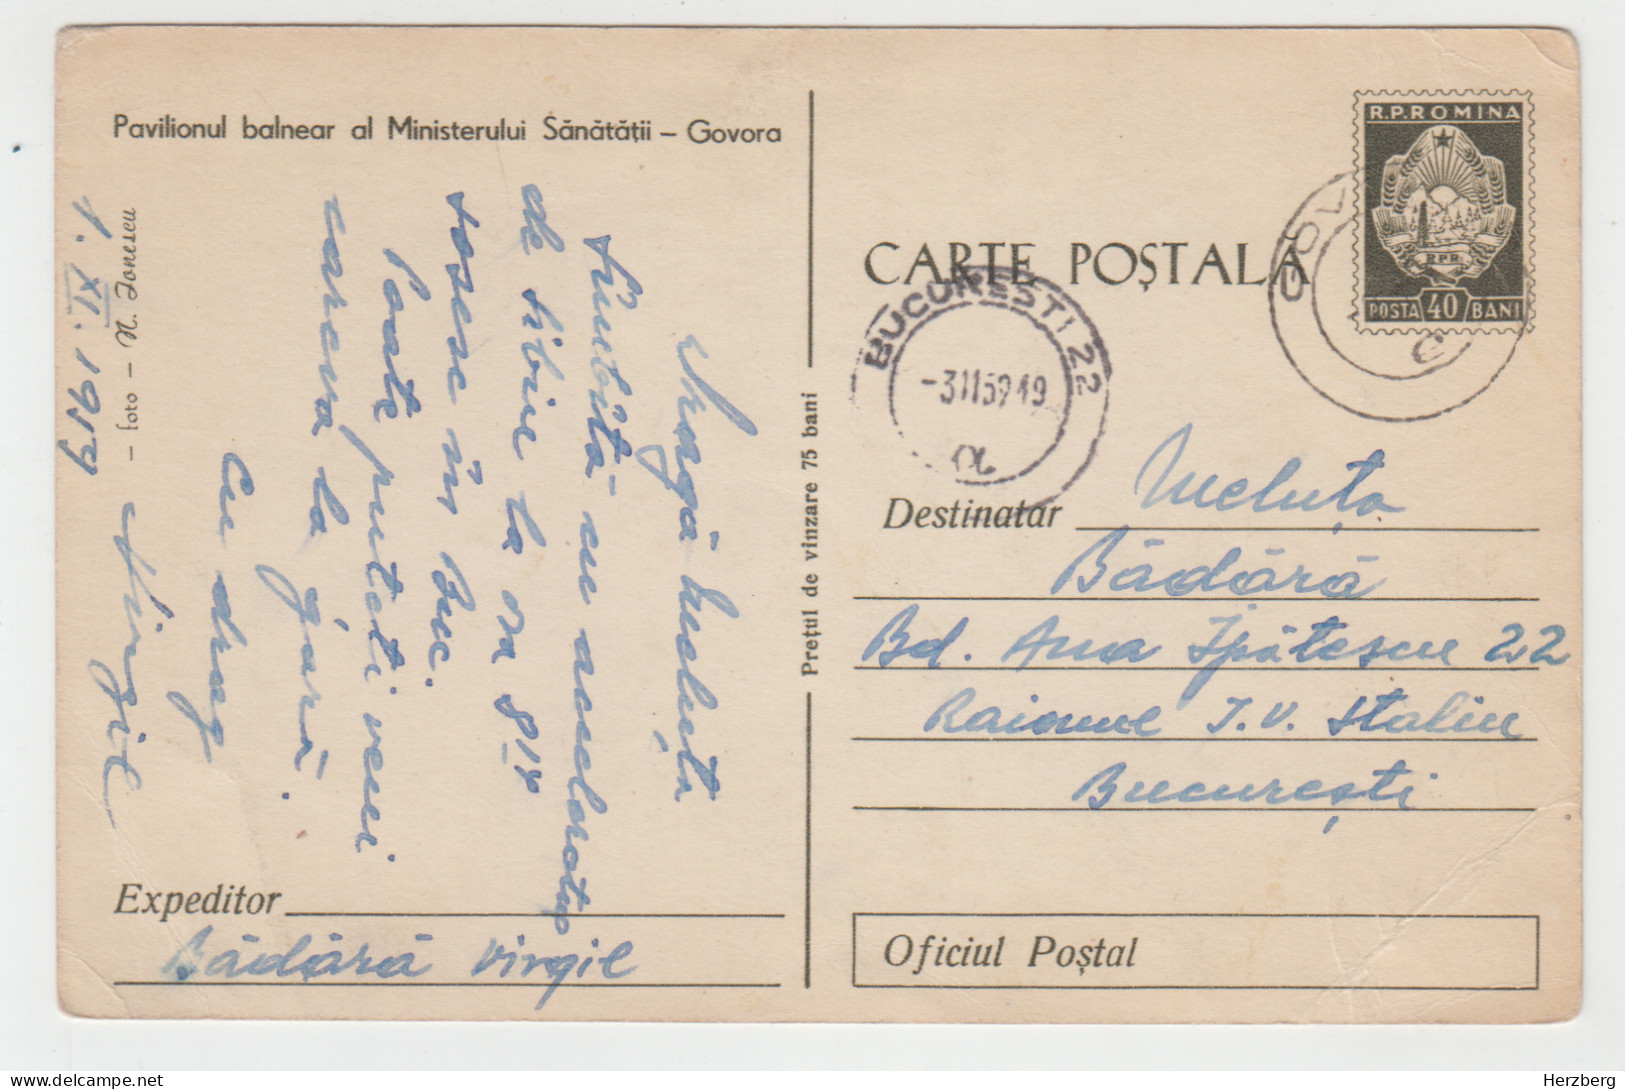 Pavilionul balnear al Ministerului Sănătății – Govora
– foto – N. Ionescu
1. XI. 1959
Dragă Neluța
Sîmbătă cu acceleratul
de Sibiu la ora 8¹⁴
sosesc în Buc.
Poate puteți veni
careva la gară.
Cu drag
Virgil
Expeditor
Bădără Virgil
Prețul de vinzare 75 bani
R.P.ROMINA
RPR
POSTA 40 BANI
CARTE POȘTALĂ
BUCUREȘTI 22
-3 11 59 19
Destinatar Neluța
Bădără
Bd. Ana Ipătescu 22
Raionul I.V. Stalin
București
Oficiul Poștal
Herzberg